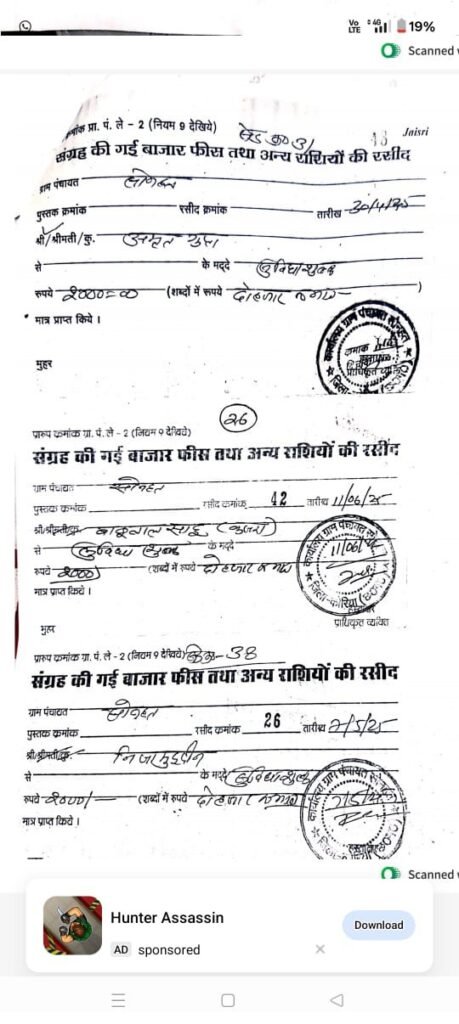 Vo LTE 4G 19%
Scanned
क्रमांक प्रा. पं. ले - 2 (नियम 9 देखिये) 13 Jaisri
संग्रह की गई बाजार फीस तथा अन्य राशियों की रसीद
ग्राम पंचायत
पुस्तक क्रमांक रसीद क्रमांक तारीख 30/4/25
श्री/श्रीमती/कु. अमृत
से के मद्दे सुविधा शुल्क
रूपये 2000=00 (शब्दों में रूपये दो हजार )
मात्र प्राप्त किये ।
मुहर
26
प्रारुप क्रमांक ग्रा. पं. ले - 2 (नियम 9 देखिये)
संग्रह की गई बाजार फीस तथा अन्य राशियों की रसीद
ग्राम पंचायत सोनहत
पुस्तक क्रमांक रसीद क्रमांक 42 तारीख 11/06/25
श्री/श्रीमती/कु. साहू
से सुविधा शुल्क के मद्दे
रूपये 2000) (शब्दों में रुपये दो हजार
मात्र प्राप्त किये ।
कार्यालय ग्राम पंचायत
11/06/25
जिला-कोरिया (छ०ग०)
मुहर प्राधिकृत व्यक्ति
प्रारुप क्रमांक ग्रा. पं. ले - 2 (नियम 9 देखिये) 38
संग्रह की गई बाजार फीस तथा अन्य राशियों की रसीद
ग्राम पंचायत सोनहत
पुस्तक क्रमांक रसीद क्रमांक 26 तारीख 7/5/25
श्री/श्रीमती/कु. निजामुद्दीन
से के मद्दे सुविधा शुल्क
रूपये 2000/- (शब्दों में रुपये दो हजार
मात्र प्राप्त किये ।
कार्यालय ग्राम पंचायत
7/5/25
Scanned
Hunter Assassin
AD sponsored
Download